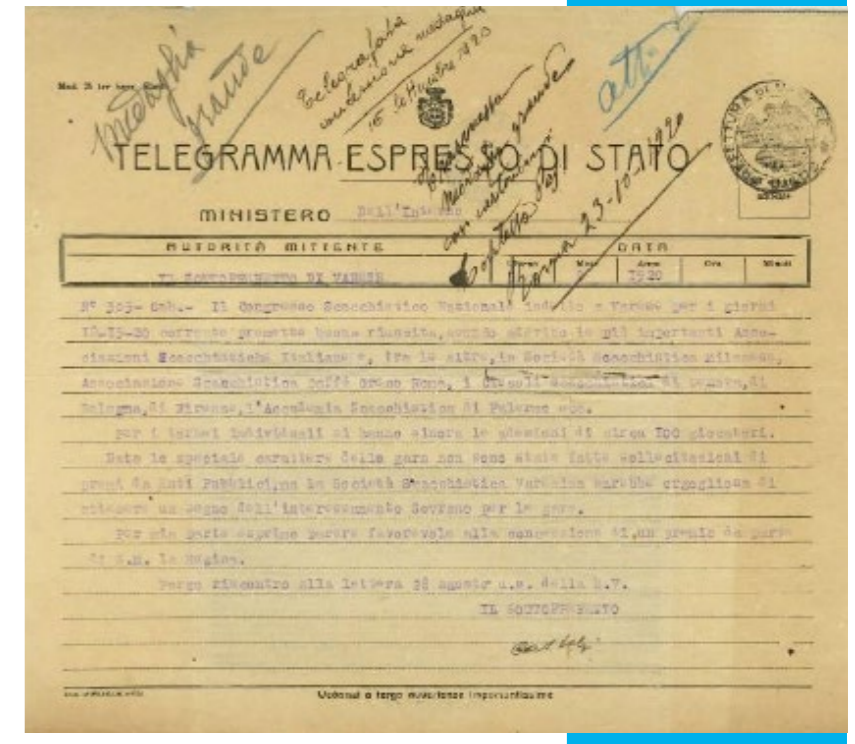 medaglia
grande
Telegrafata
concessione medaglia
15 settembre 1920
atti
Mod. 25
TELEGRAMMA ESPRESSO DI STATO
medaglia grande
con
Roma 23-10-1920
PREFETTURA DI
MINISTERO Dell'Interno
AUTORITÀ MITTENTE DATA
Giorno Mese Anno Ora Minuti
IL SOTTOPREFETTO DI VARESE 1920
N° 303- Gab.- Il Congresso Scacchistico Nazionale indetto a Varese per i giorni
18-19-20 corrente promette buona riuscita, avendo aderito le più importanti Asso-
ciazioni Scacchistiche Italiane, tra le altre, la Società Scacchistica Milanese,
Associazione Scacchistica Caffè Greco Roma, i Circoli Scacchistici di di
Bologna, di Firenze, l'Accademia Scacchistica di Palermo ecc.
Per i tornei individuali si hanno sinora le adesioni di circa 100 giocatori.
Dato lo speciale carattere della gara non sono state fatte sollecitazioni di
premi da Enti Pubblici, ma la Società Scacchistica Varesina sarebbe orgogliosa di
ottenere un segno dell'interessamento Sovrano per la gara.
Per mia parte esprimo parere favorevole alla concessione di un premio da parte
di S.M. la Regina.
Porgo riscontro alla lettera 28 agosto u.s. della S.V.
IL SOTTOPREFETTO
Vedansi a tergo avvertenze importantissime